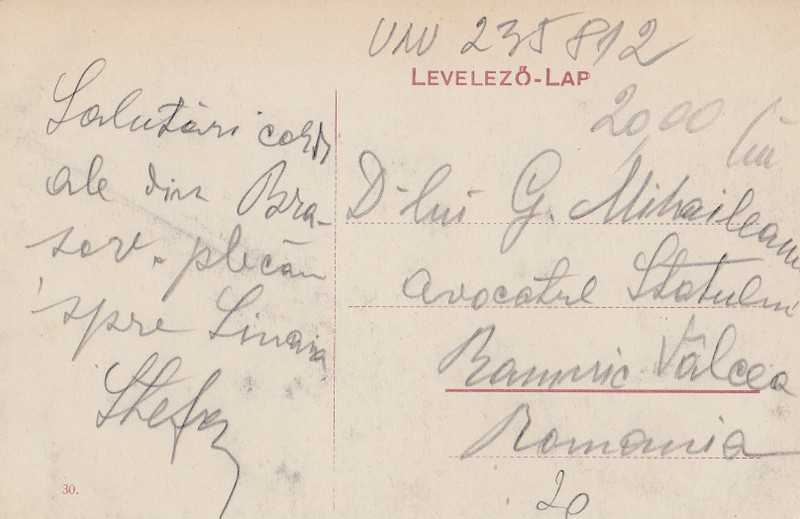 UW 235812
LEVELEZŐ-LAP
2000 lei
Salutări cordi
ale din Bra-
sov. plecăm
spre Sinaia
Stefan
D-lui G. Mihaileanu
avocatul Statului
Ramnic Vâlcea
Romania
20
30.